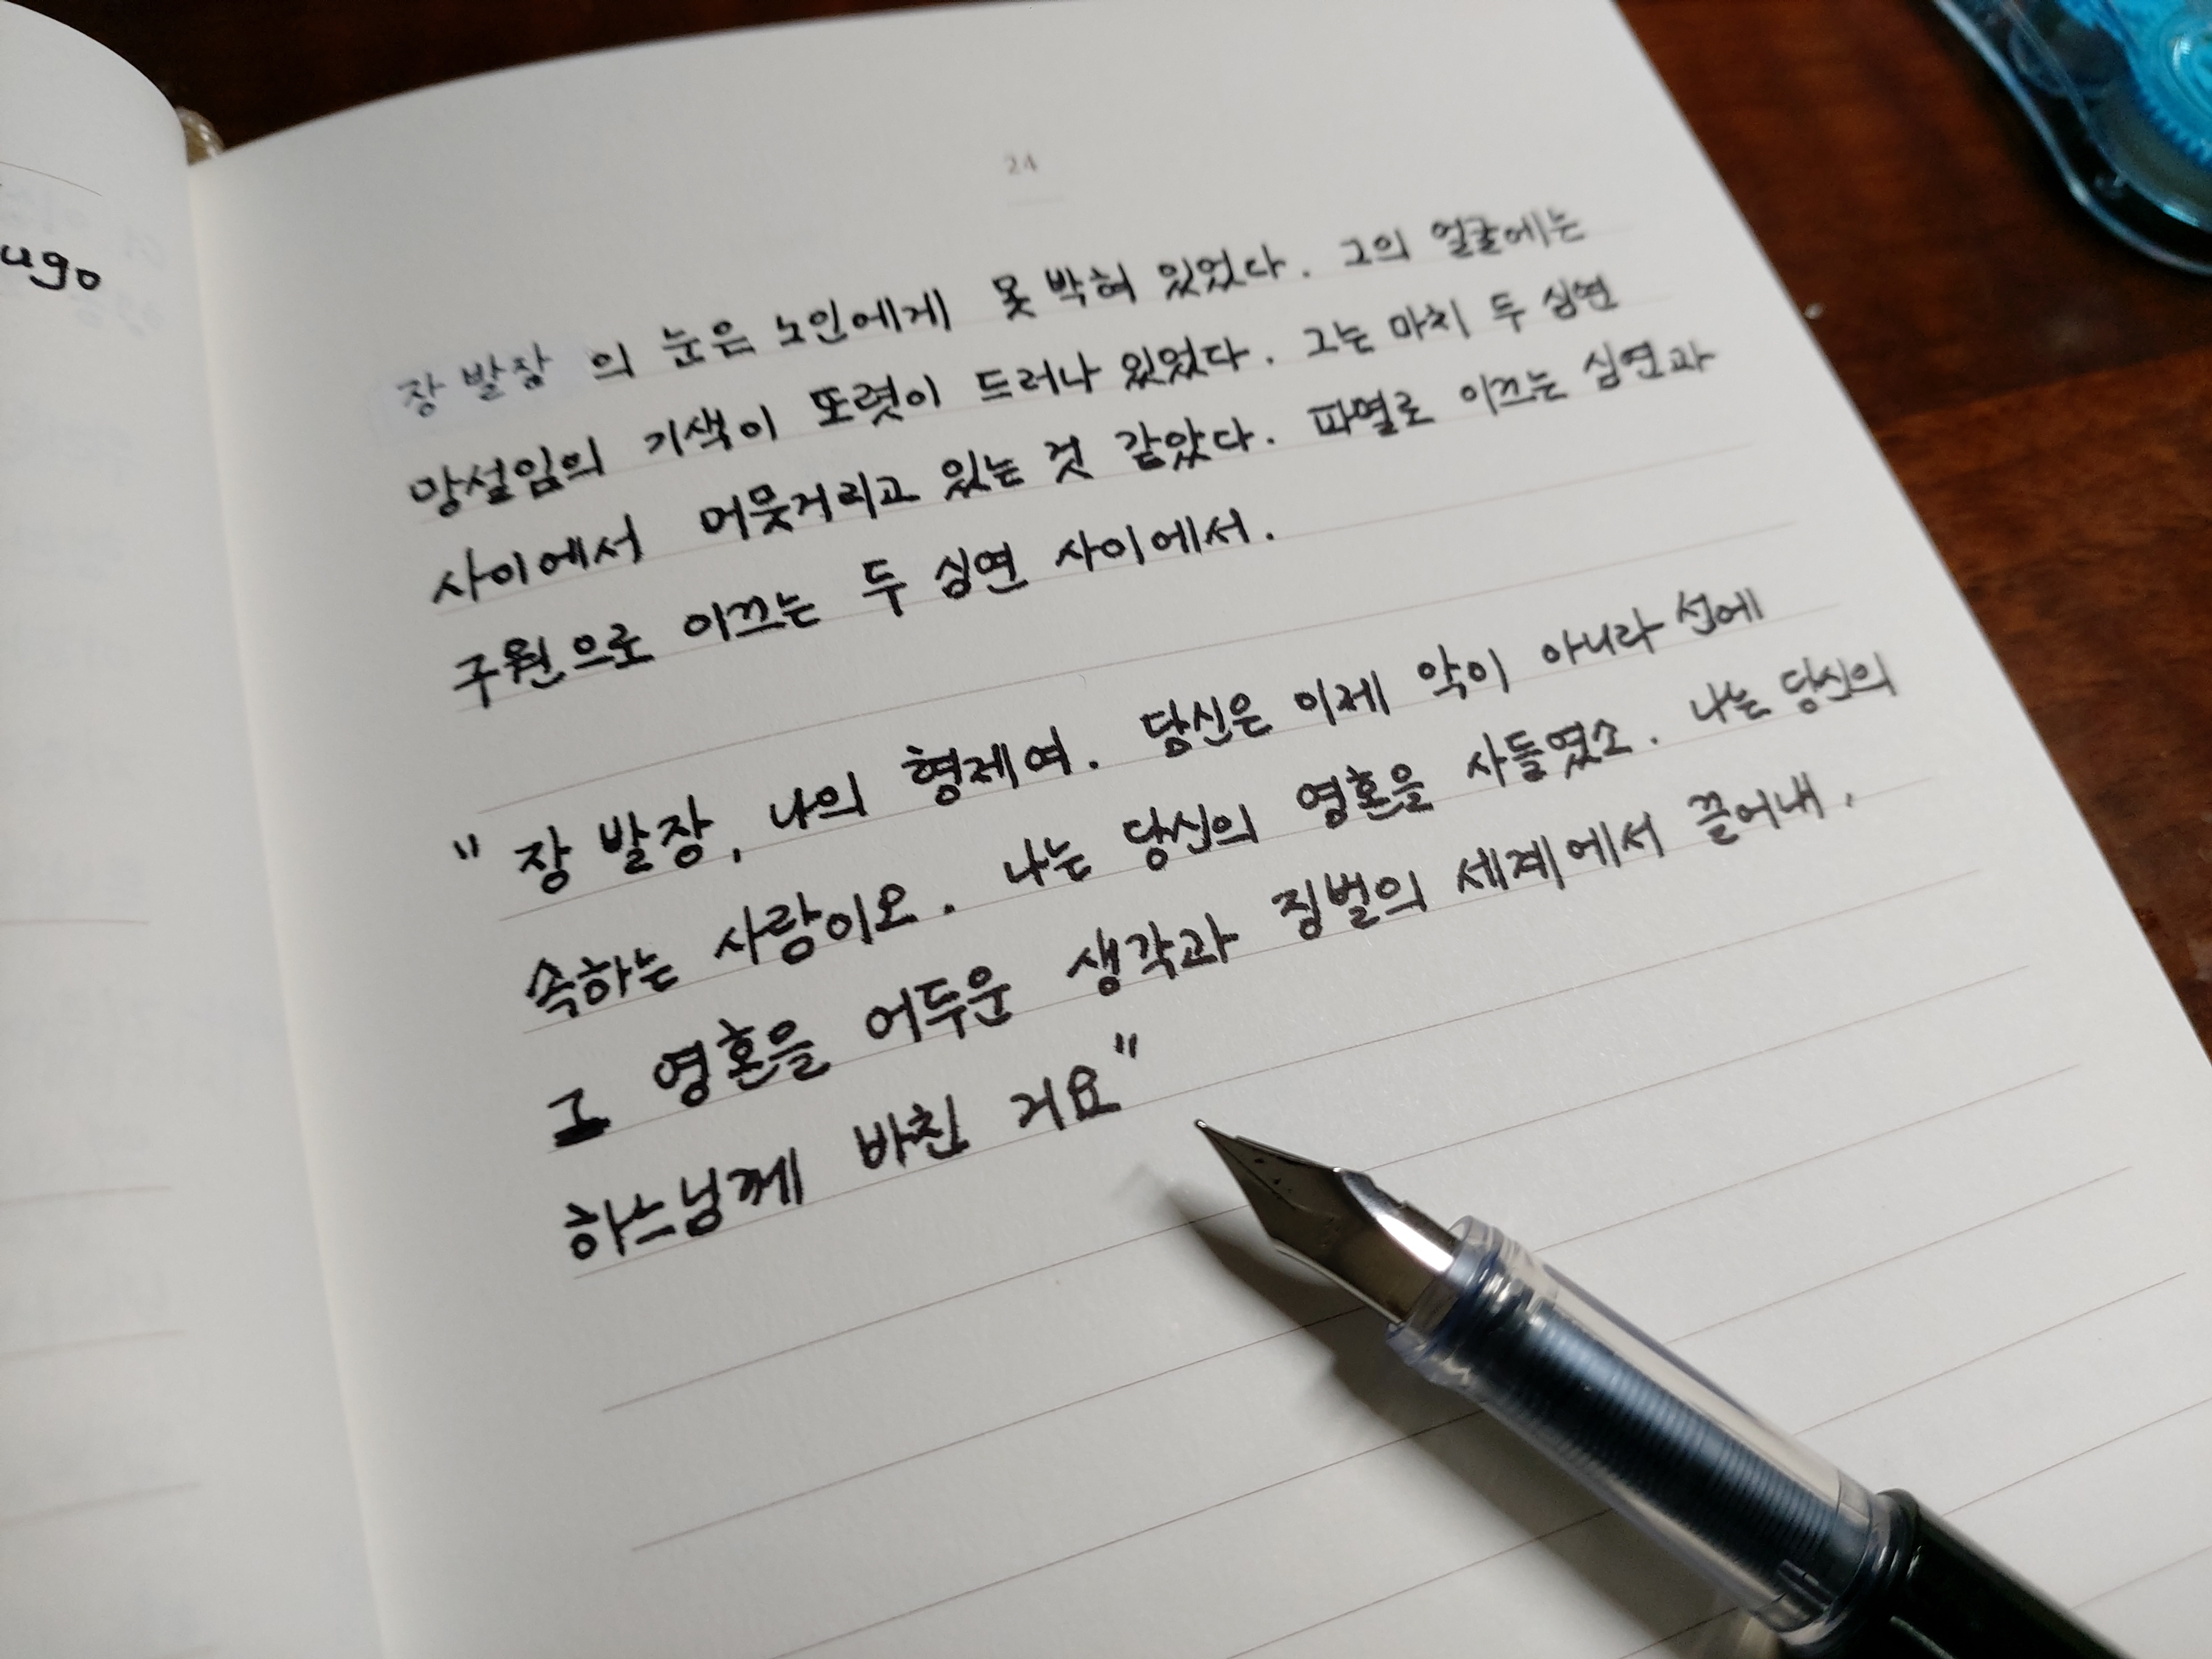 ugo
24
장발장 의 눈은 노인에게 못 박혀 있었다. 그의 얼굴에는
망설임의 기색이 또렷이 드러나 있었다. 그는 마치 두 심연
사이에서 머뭇거리고 있는 것 같았다. 파멸로 이끄는 심연과
구원으로 이끄는 두 심연 사이에서.
" 장 발장, 나의 형제여. 당신은 이제 악이 아니라 선에
속하는 사람이오. 나는 당신의 영혼을 사들였소. 나는 당신의
그 영혼을 어두운 생각과 징벌의 세계에서 끌어내,
하느님께 바친 거요"